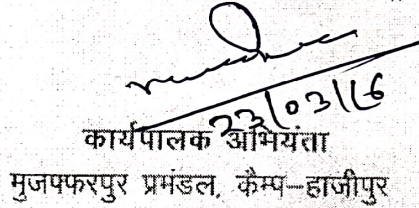 23/03/16
कार्यपालक अभियंता
मुजफ्फरपुर प्रमंडल, कैम्प–हाजीपुर